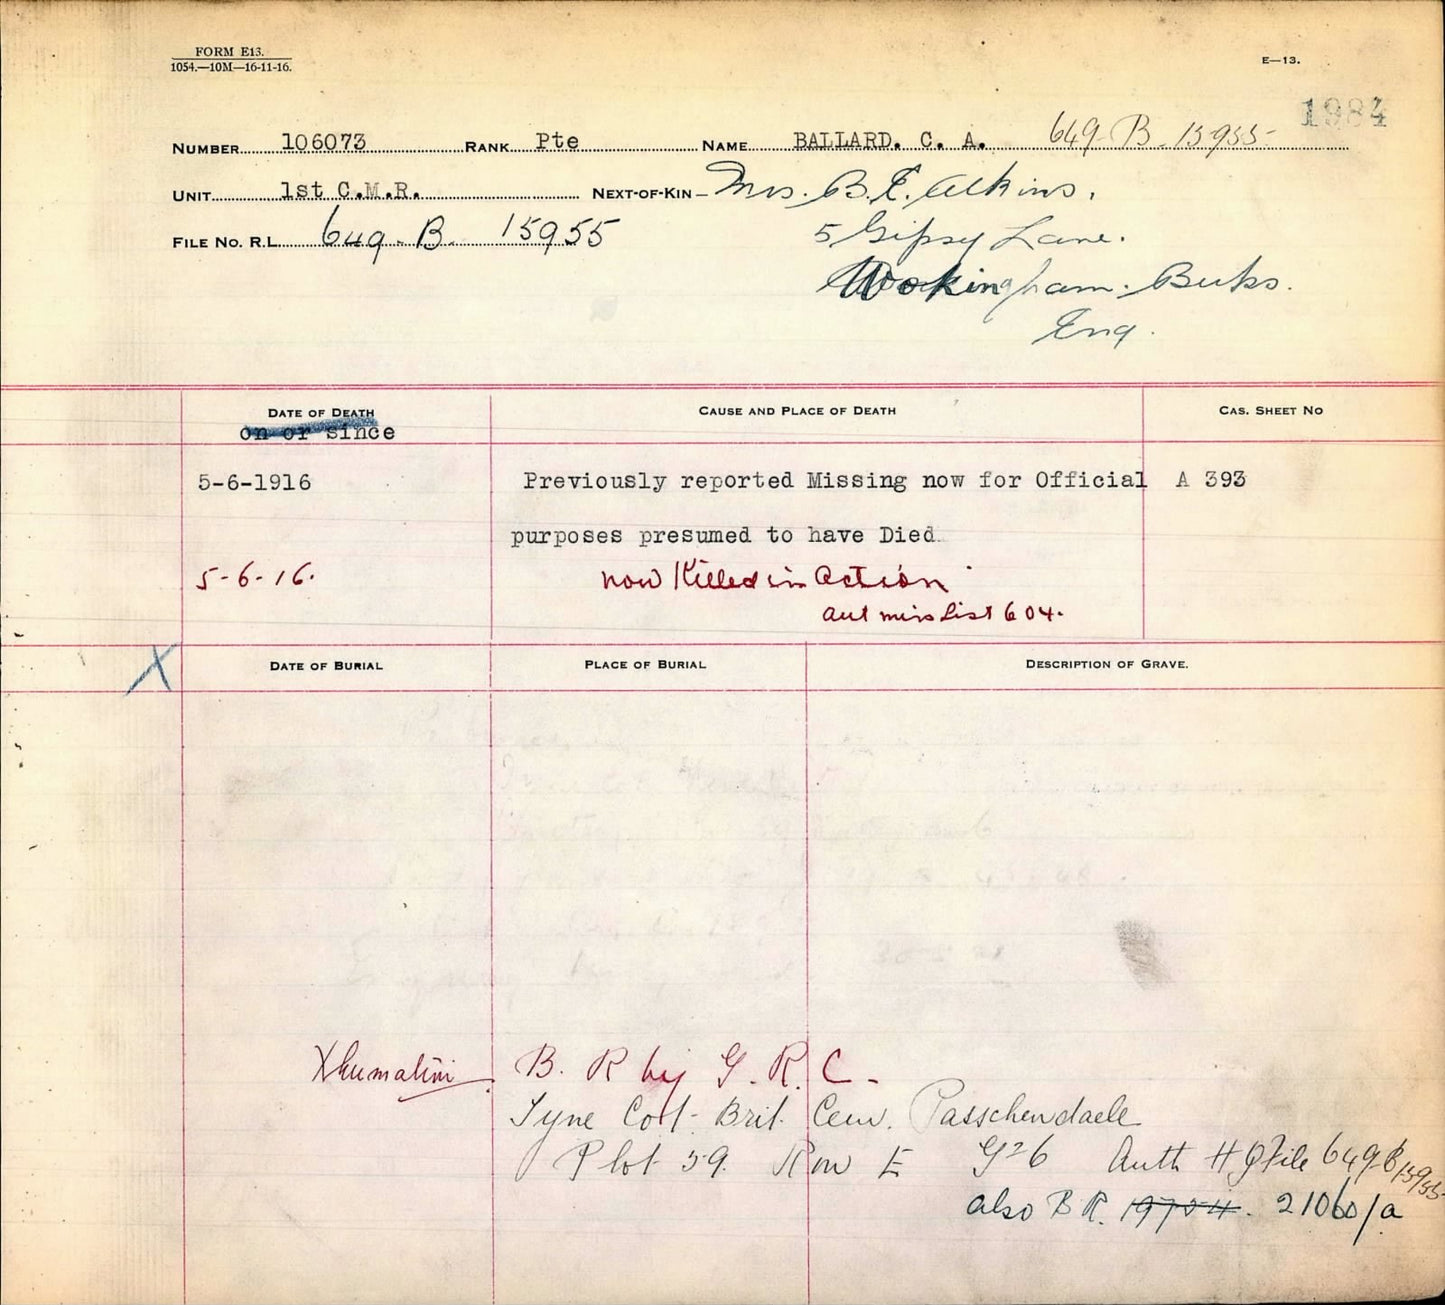 FORM E13.
1054.—10M—16-11-16.
E—13.
1984
NUMBER 106073 RANK Pte NAME BALLARD. C. A. 649-B-15955-
UNIT 1st C.M.R. NEXT-OF-KIN Mrs. B.E. Atkins,
FILE NO. R.L. 649-B. 15955
5 Gipsy Lane.
Wokingham. Berks.
Eng.
DATE OF DEATH CAUSE AND PLACE OF DEATH CAS. SHEET NO
on or since
5-6-1916 Previously reported Missing now for Official A 393
purposes presumed to have Died
5-6-16. now Killed in Action
aut miss List 604.
X DATE OF BURIAL PLACE OF BURIAL DESCRIPTION OF GRAVE.
Xhumation B. R by G. R. C.
Tyne Cot Brit. Cem. Passchendaele
Plot 59. Row E G26 Auth HQ File 649-B 15955
also B R. 19784. 21060/a